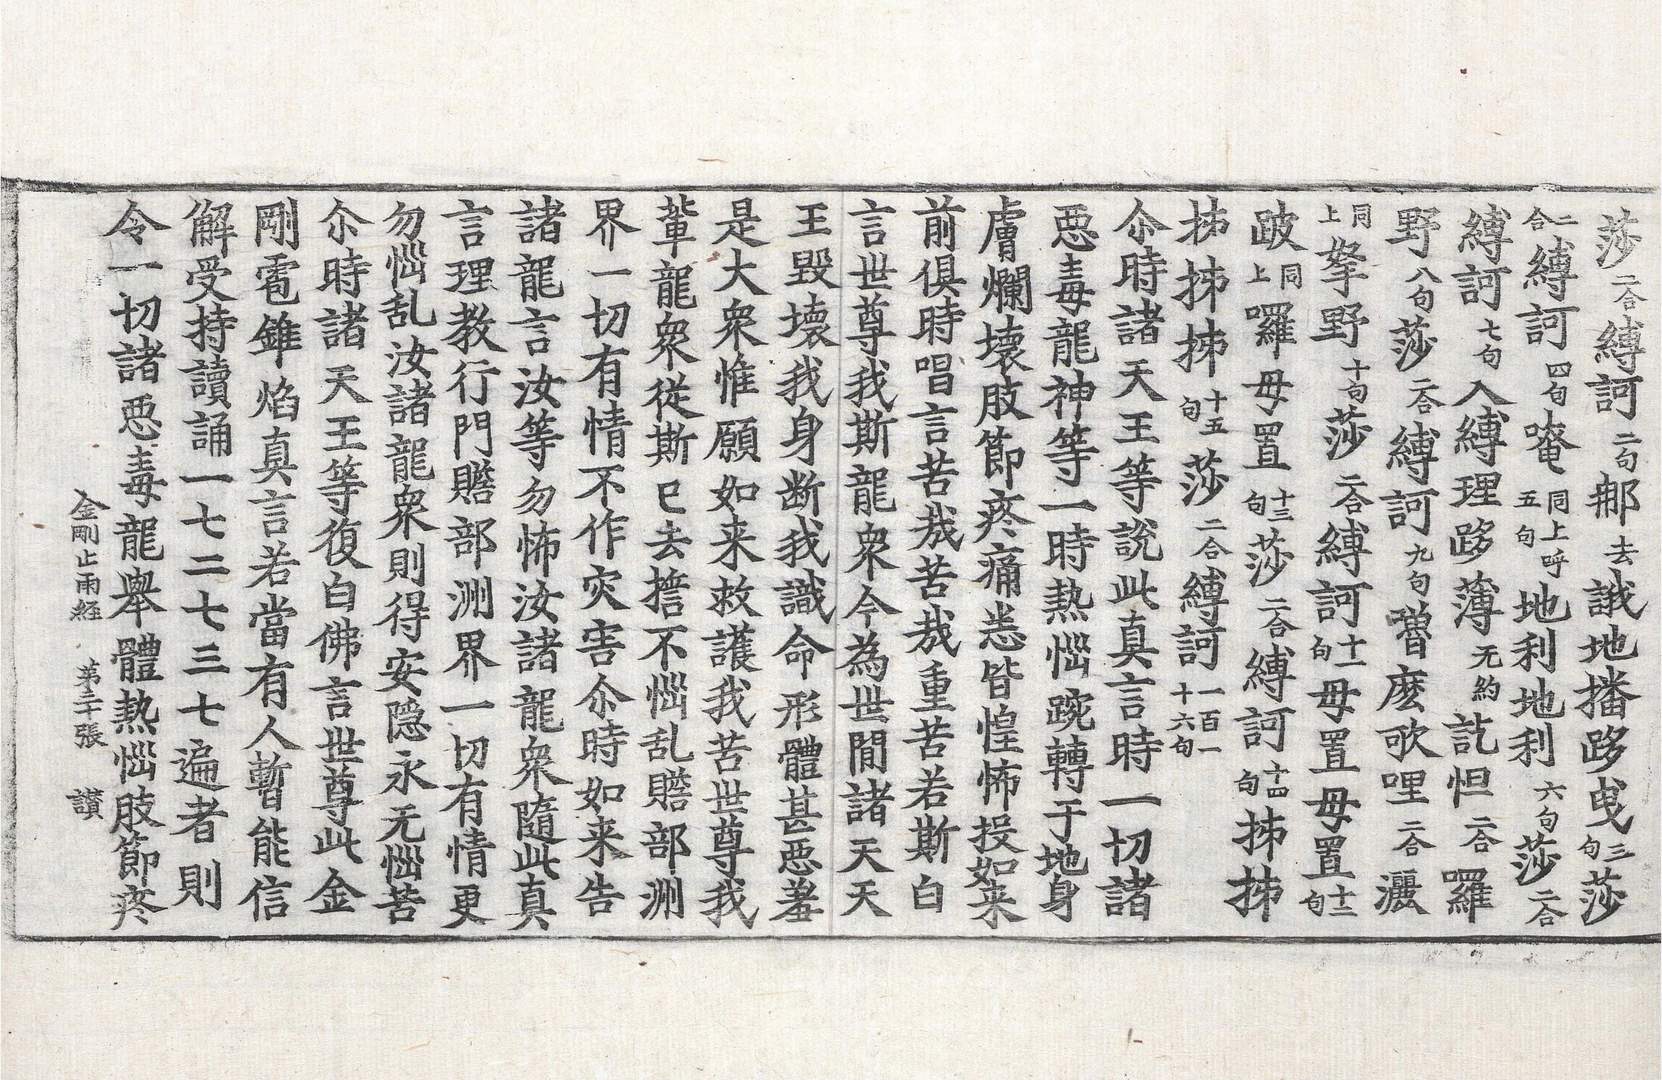 莎二合縛訶二句那去誐地播跢曳三句莎
二合縛訶四句唵同上呼五句地利地利六句莎二合
縛訶七句入縛理跢薄无約訖怛二合羅
野八句莎二合縛訶九句噜麽歌哩二合灑
同上拏野十句莎二合縛訶十一句毋置毋置十二句
跛同上囉毋置十三句莎二合縛訶十四句抺抺
抺抺抺十五句莎二合縛訶一百一十六句
尒時諸天王等說此真言時一切諸
惡毒龍神等一時熱惱踠轉于地身
膚爛壞肢節疼痛悉皆惶怖投如来
前俱時唱言苦㢤苦㢤重苦若斯白
言世尊我斯龍衆今為世閒諸天天
王毀壞我身断我識命形體甚惡羞
是大衆惟願如来救護我苦世尊我
軰龍衆從斯已去擔不惱乱贍部洲
界一切有情不作灾害尒時如来告
諸龍言汝等勿怖汝諸龍衆隨此真
言理教行門贍部洲界一切有情更
勿惱乱汝諸龍衆則得安隱永无惱苦
尒時諸天王等復白佛言世尊此金
剛雹錐焰真言若當有人暫能信
解受持讀誦一七二七三七遍者則
令一切諸惡毒龍舉體熱惱肢節疼
金剛止雨經 第三十張 讃